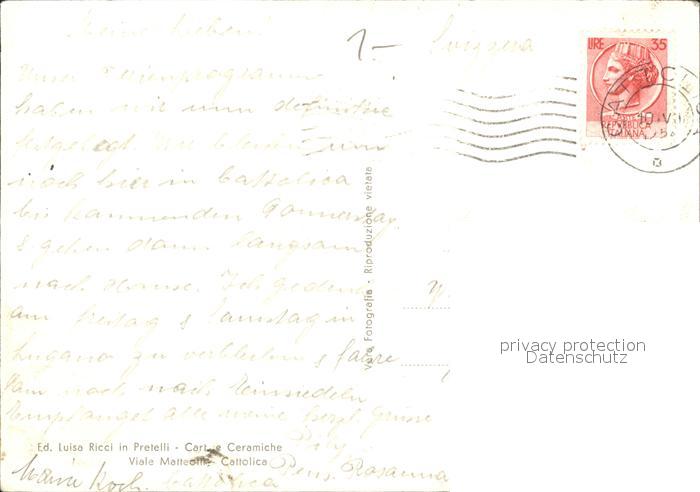 Meine Lieben!
1.-
Svizzera
LIRE 35
REPVBBLICA
ITALIANA
Unser Ferienprogramm
haben wir nun definitive
festgelegt. Wir bleiben nun
noch hier in Cattolica
bis kommenden Donnerstag
& gehen dann langsam
nach Hause. Ich gedenke
am Freitag & Samstag in
Lugano zu verbleiben & fahre
dann noch nach Einsiedeln
Empfanget alle meine herzl. Grüsse
Pens. Rosanna
Koch.
Cattolica
Vera Fotografia - Riproduzione vietata
Ed. Luisa Ricci in Pretelli - Cart. e Ceramiche
Viale Matteotti - Cattolica
privacy protection
Datenschutz